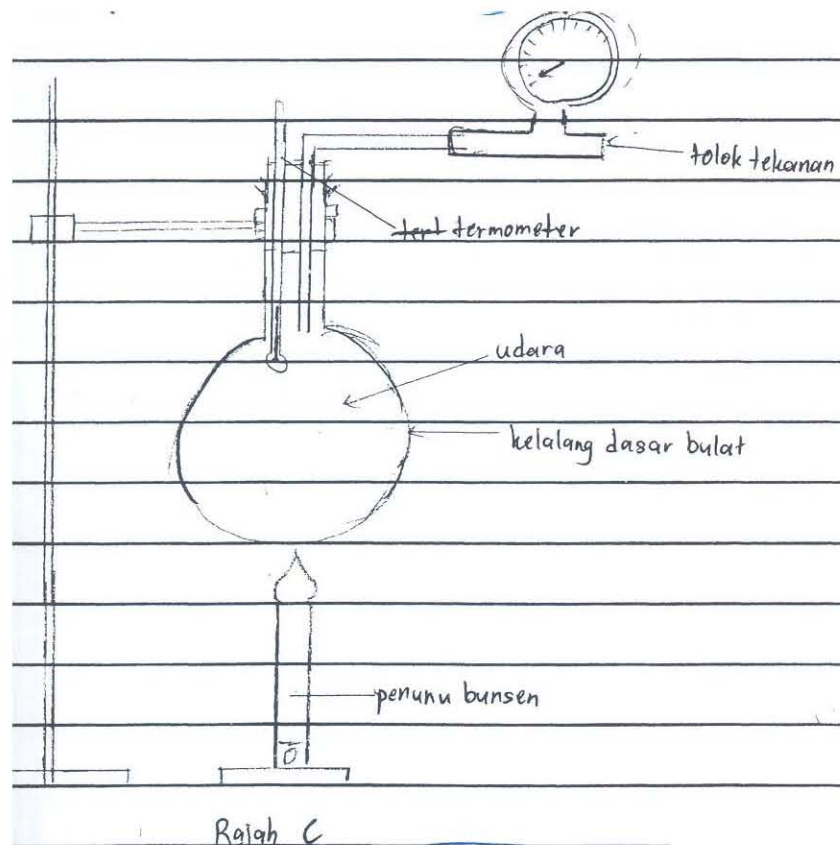 tolok tekanan
termometer
udara
kelalang dasar bulat
penunu bunsen
Rajah C